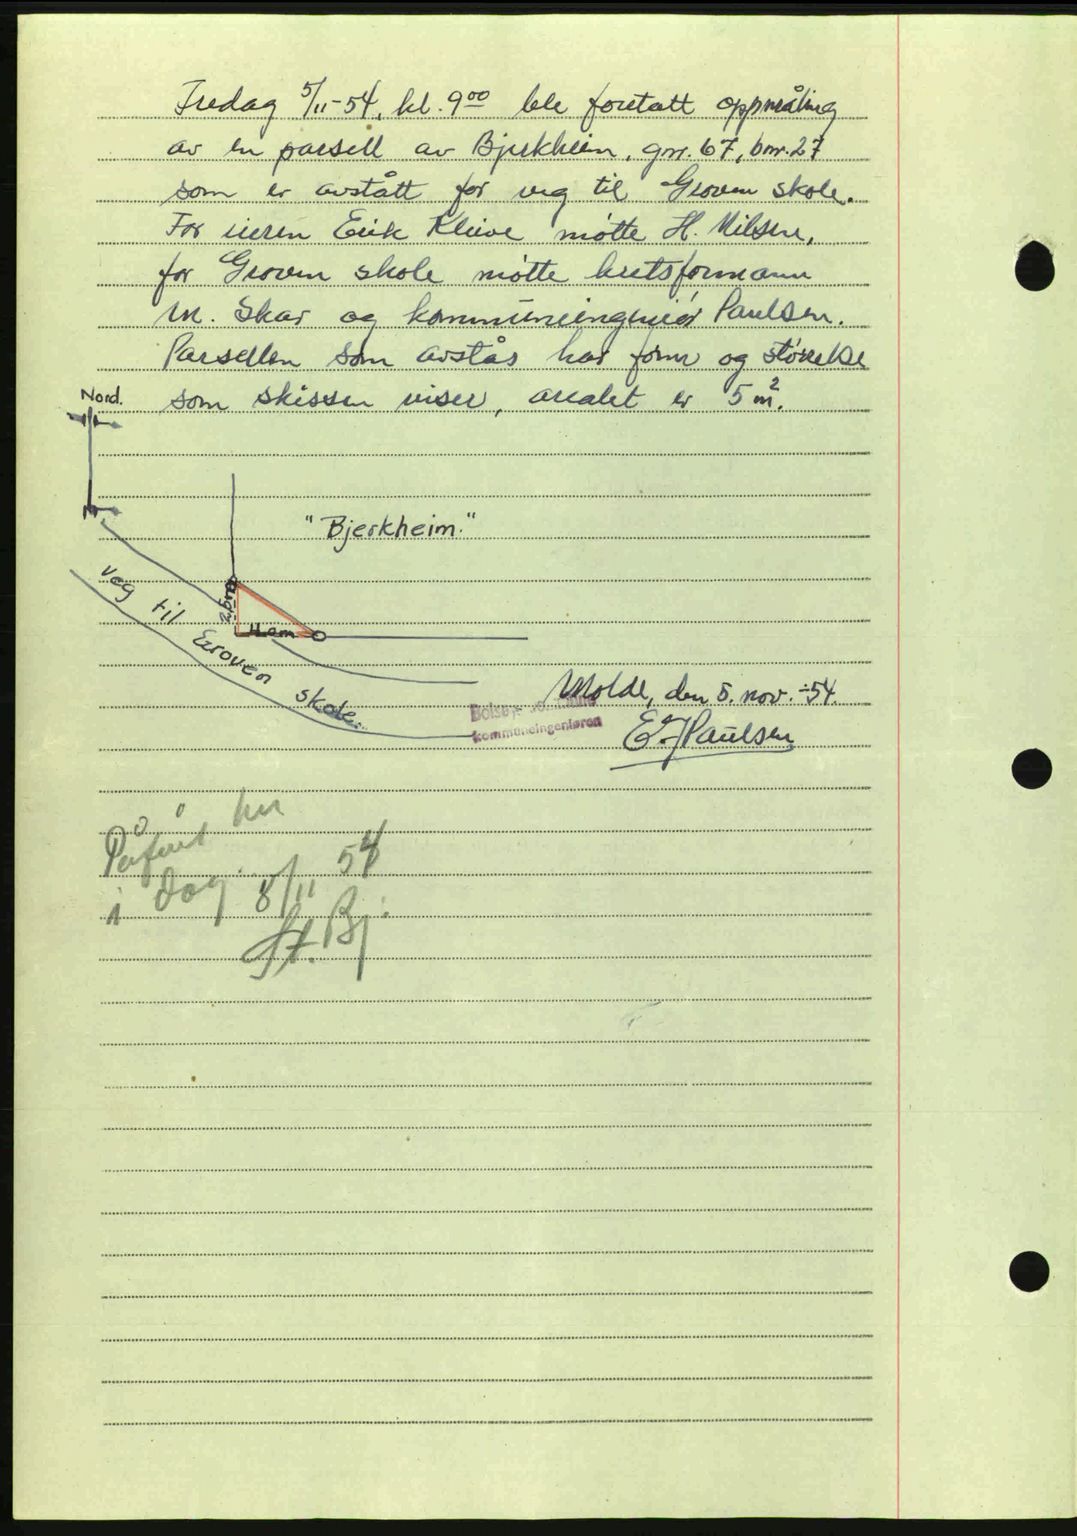 Fredag 5/11-54, kl. 9⁰⁰ ble foretatt oppmåling
av en parsell av Bjerkheim, gnr. 67, bnr. 27
som er avstått for veg til Groven skole.
For eieren Eirik Kleive møtte H. Nilsen,
for Groven skole møtte kretsformann
M. Skar og kommuneingeniør Paulsen.
Parsellen som avstås har form og størrelse
som skissen viser, arealet er 5 m².
Nord.
"Bjerkheim."
veg til Groven skole.
2,5 m
4,0 m
Molde, den 5. nov. -54.
Bolsøy
kommuneingeniøren
E. J. Paulsen
Påført her
i dag. 8/11 54
St. Bj.